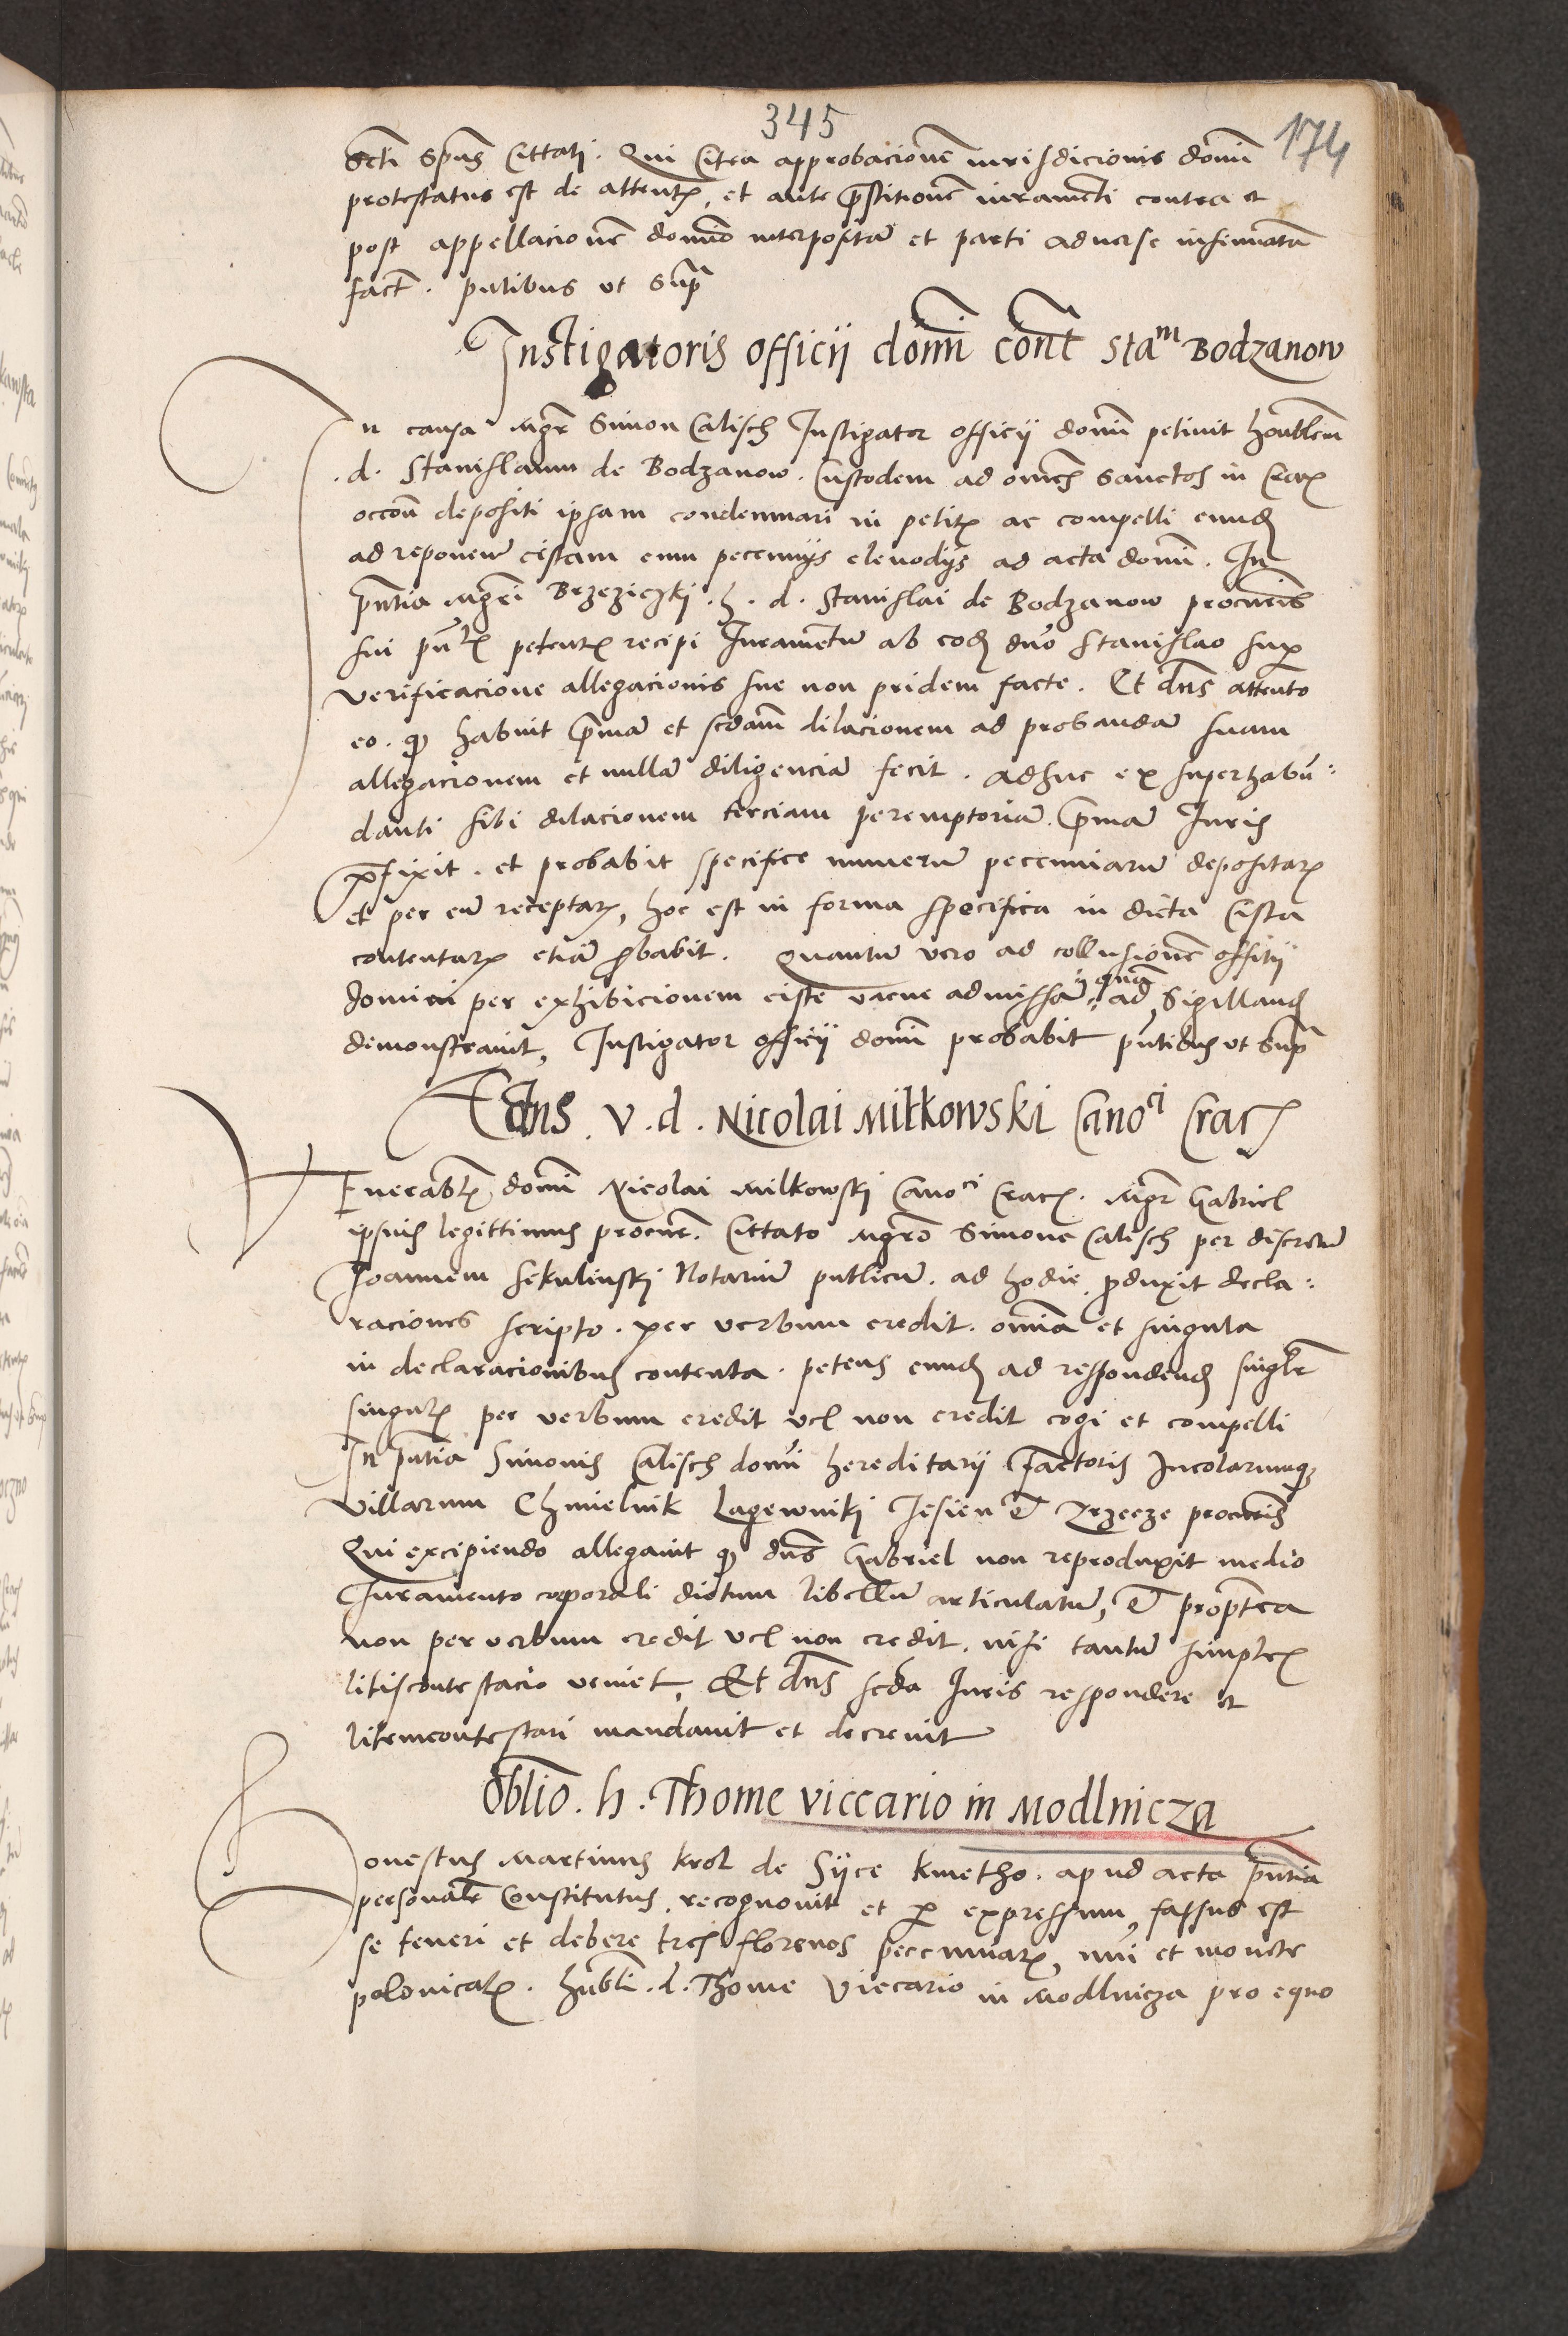 345
174
Scti Spūs Cittati. Qui Citra approbacionē iurisdicionis domĩ
protestatus est de attentꝭ, et ante p̃stitionē iuramẽti contra et
post appellacionē domīo interpositā et parti adverse insinuatā
fact̄. pn̄tibus vt Sup̃
Instigatoris officij domĩ cont̃ staᵐ Bodzanow
In causa Mgr̄ Simon Calisch Instigator officij domĩ petivit honblem̄
d. Stanislaum de Bodzanow. Custodem ad oīnes Sanctos in Cracꝭ
occōn depositi ipsam condemnari in petitꝭ ac compelli eundꝭ
ad reponenᵈ cistam cum pecunijs clenodijs ad acta domĩ. In
p̄ntia Mgrĩ Brzeziczkj. h. d. Stanislai de Bodzanow procuris
sui pn̄tꝭ petentꝭ recipi Iuramentū ab eodꝭ dño Stanislao sup̱
verificacione allegacionis sue non pridem facte. Et dns̄ attento
eo. qꝫ habuit p̃mā et scdam̄ dilacionem ad probandā suam
allegacionem et nullā diligenciā fecit. adhuc ex superhabū:
danti sibi dilacionem terciam peremptoriā. p̃mā Iuris
p̄fixit. et probabit specifice numerū pecunniarū depositarꝭ
et per eū receptarꝭ, hoc est in forma specifica in dicta Cista
contentarꝭ etiā ꝓbabit. Quantū vero ad collusionē offitij
domini per exhibicionem ciste vacue admissā, in quā ad Sigillandꝭ
demonstravit, Instigator officij domĩ probabit pn̄tibus vt Sup̃
V. d. Nicolai Miłkowski Canoᶜⁱ Cracꝭ
Venerablꝭ domĩ Nicolai Milkowskj Canoᶜⁱ Cracꝭ. Mgr̄ Gabriel
ipsius legittimus procur̄. Cittato Mgrō Simone Calisch per discretū
Joannem Sekulinskj Notariū publicū. ad hodie ꝓduxit decla:
raciones scripto. per verbum credit. omīa et singula
in declaracionibus contenta. petens eundꝭ ad respondendꝭ singlr̄
singulꝭ per verbum credit vel non credit cogi et compelli
In p̄ntia Simonis Calisch domĩ hereditarij Actoris Incolarumqꝫ
villarum Chmielnik Lagewnikj Jesien & Zrzecze procuris
Qui excipiendo allegavit qꝫ dns̄ Gabriel non reproduxit medio
Iuramento corporali dictum libellū articulatū, & propterea
non per verbum credit vel non credit. nisi tantū simplex
litiscontestacio veniet, Et dns̄ scda Iuris respondere et
litemcontestari mandavit et decrevit
Oblīo. h. Thome viccario in Modlnicza
Honestus Martinus krol de Syce kmetho. apud acta p̄ntia
personalr̄ Constitutus, recognovit et per expressum, fassus est
se teneri et debere tres florenos pecunniarꝭ, nũi et monete
polonicalꝭ. hnbli. d. Thome Viccario in Modlnicza pro equo